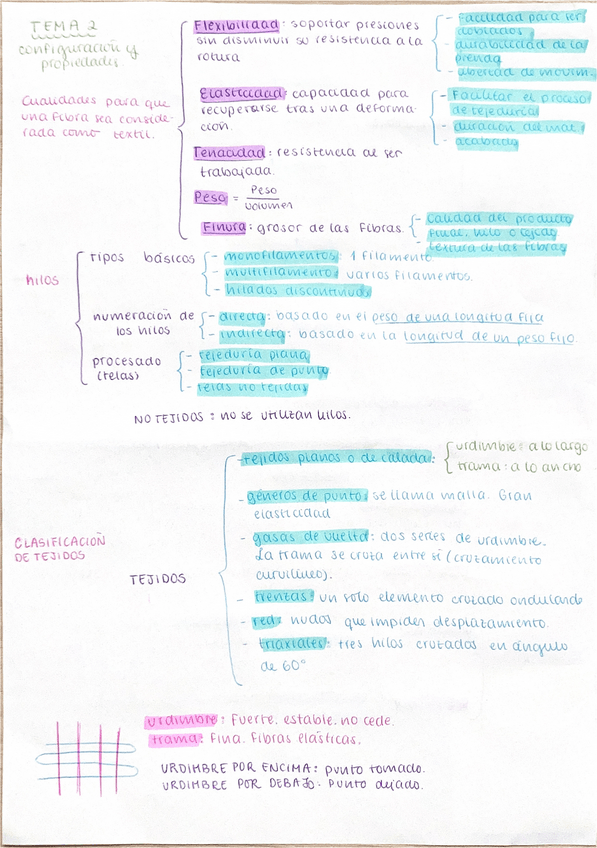 TEMA 2
configuración y
propiedades.
Cualidades para que
una fibra sea conside-
rada como textil.
Flexibilidad: soportar presiones
sin disminuir su resistencia a la
rotura
- Facilidad para ser
doblados
- durabilidad de la
prenda
- libertad de movim.
Elasticidad: capacidad para
recuperarse tras una deforma-
ción.
- Facilitar el proceso
de tejeduría
- duración del mat.
- acabado
Tenacidad: resistencia al ser
trabajada.
Peso = Peso
volumen
Finura: grosor de las fibras.
- calidad del producto
final, hilo o tejido
- textura de las fibras
hilos
tipos básicos
- monofilamentos: 1 filamento
- multifilamento: varios filamentos.
- hilados discontinuos
numeración de
los hilos
- directa: basado en el peso de una longitud fija
- indirecta: basado en la longitud de un peso fijo.
procesado
(telas)
- tejeduría plana
- tejeduría de punto
- telas no tejidas
NO TEJIDOS: no se utilizan hilos.
CLASIFICACIÓN
DE TEJIDOS
TEJIDOS
- tejidos planos o de calada:
urdimbre: a lo largo
trama: a lo ancho
- géneros de punto: se llama malla. Gran
elasticidad
- gasas de vuelta: dos series de urdimbre.
La trama se cruza entre sí (cruzamiento
curvilíneo).
- trenzas: un solo elemento cruzado ondulando
- red: nudos que impiden desplazamiento.
- triaxiales: tres hilos cruzados en ángulo
de 60°
urdimbre: Fuerte, estable, no cede.
trama: Fina. Fibras elásticas.
URDIMBRE POR ENCIMA: punto tomado.
URDIMBRE POR DEBAJO: Punto dejado.